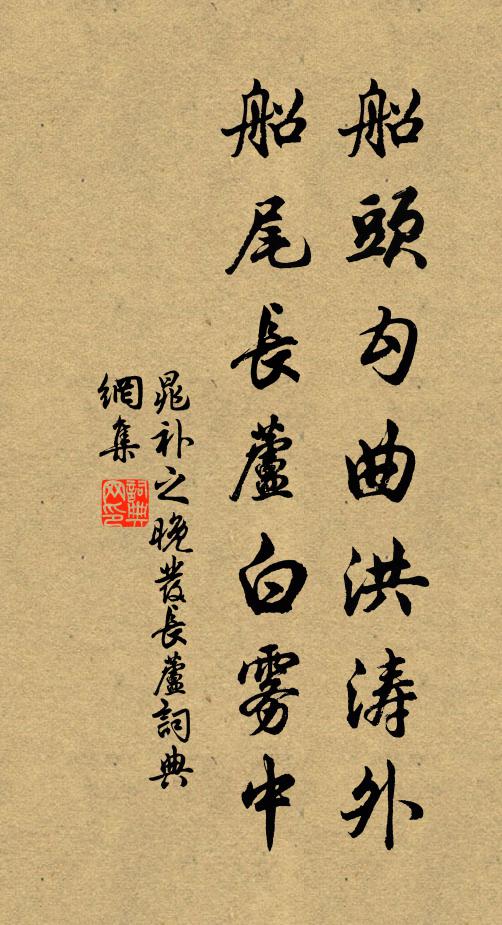 船頭勾曲洪涛外
船尾長蘆白雾中
晁补之晚發長蘆詞典
網集
詞典
网印